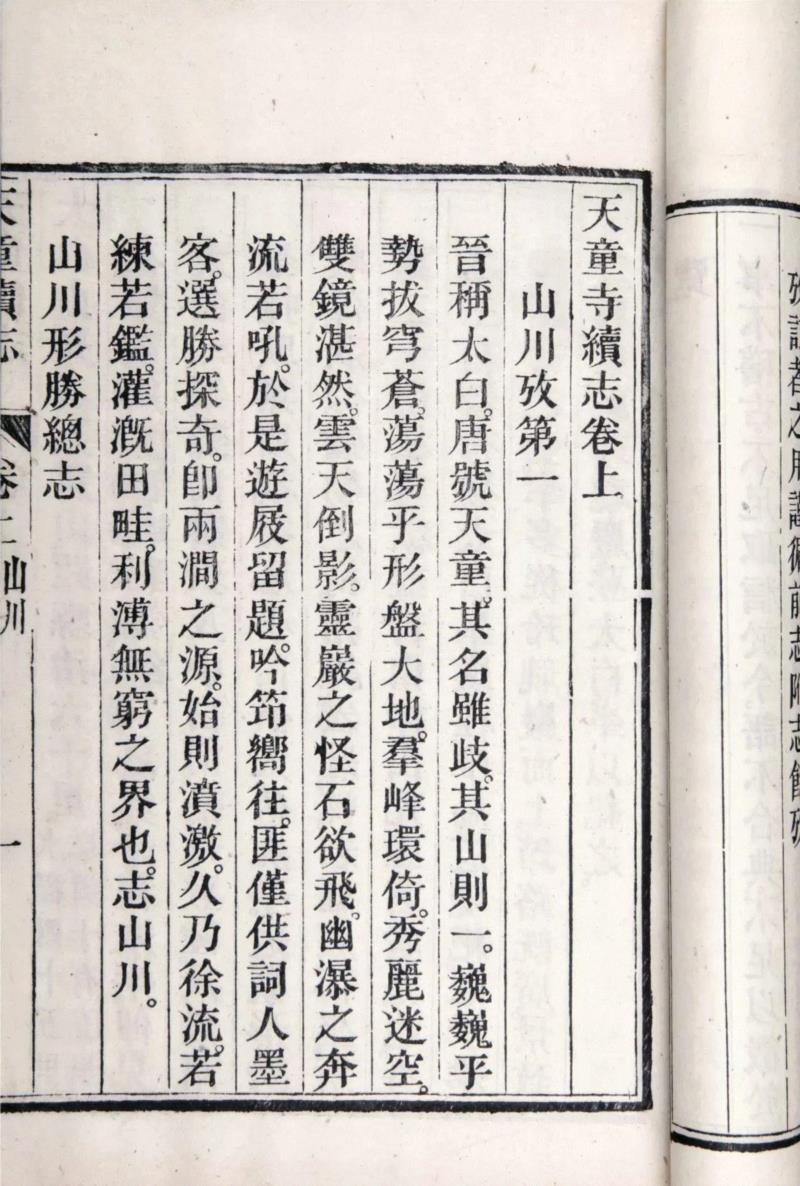 天童寺續志卷上
山川攷第一
晉稱太白。唐號天童。其名雖歧。其山則一。巍巍乎
勢拔穹蒼。蕩蕩乎形盤大地。羣峰環倚。秀麗迷空。
雙鏡湛然。雲天倒影。靈巖之怪石欲飛。幽瀑之奔
流若吼。於是遊屐留題。吟筇嚮往。匪僅供詞人墨
客。選勝探奇。卽兩澗之源。始則濆激。久乃徐流。若
練若鑑。灌漑田畦。利溥無窮之界也。志山川。
山川形勝總志
天童續志
卷上
山川
一